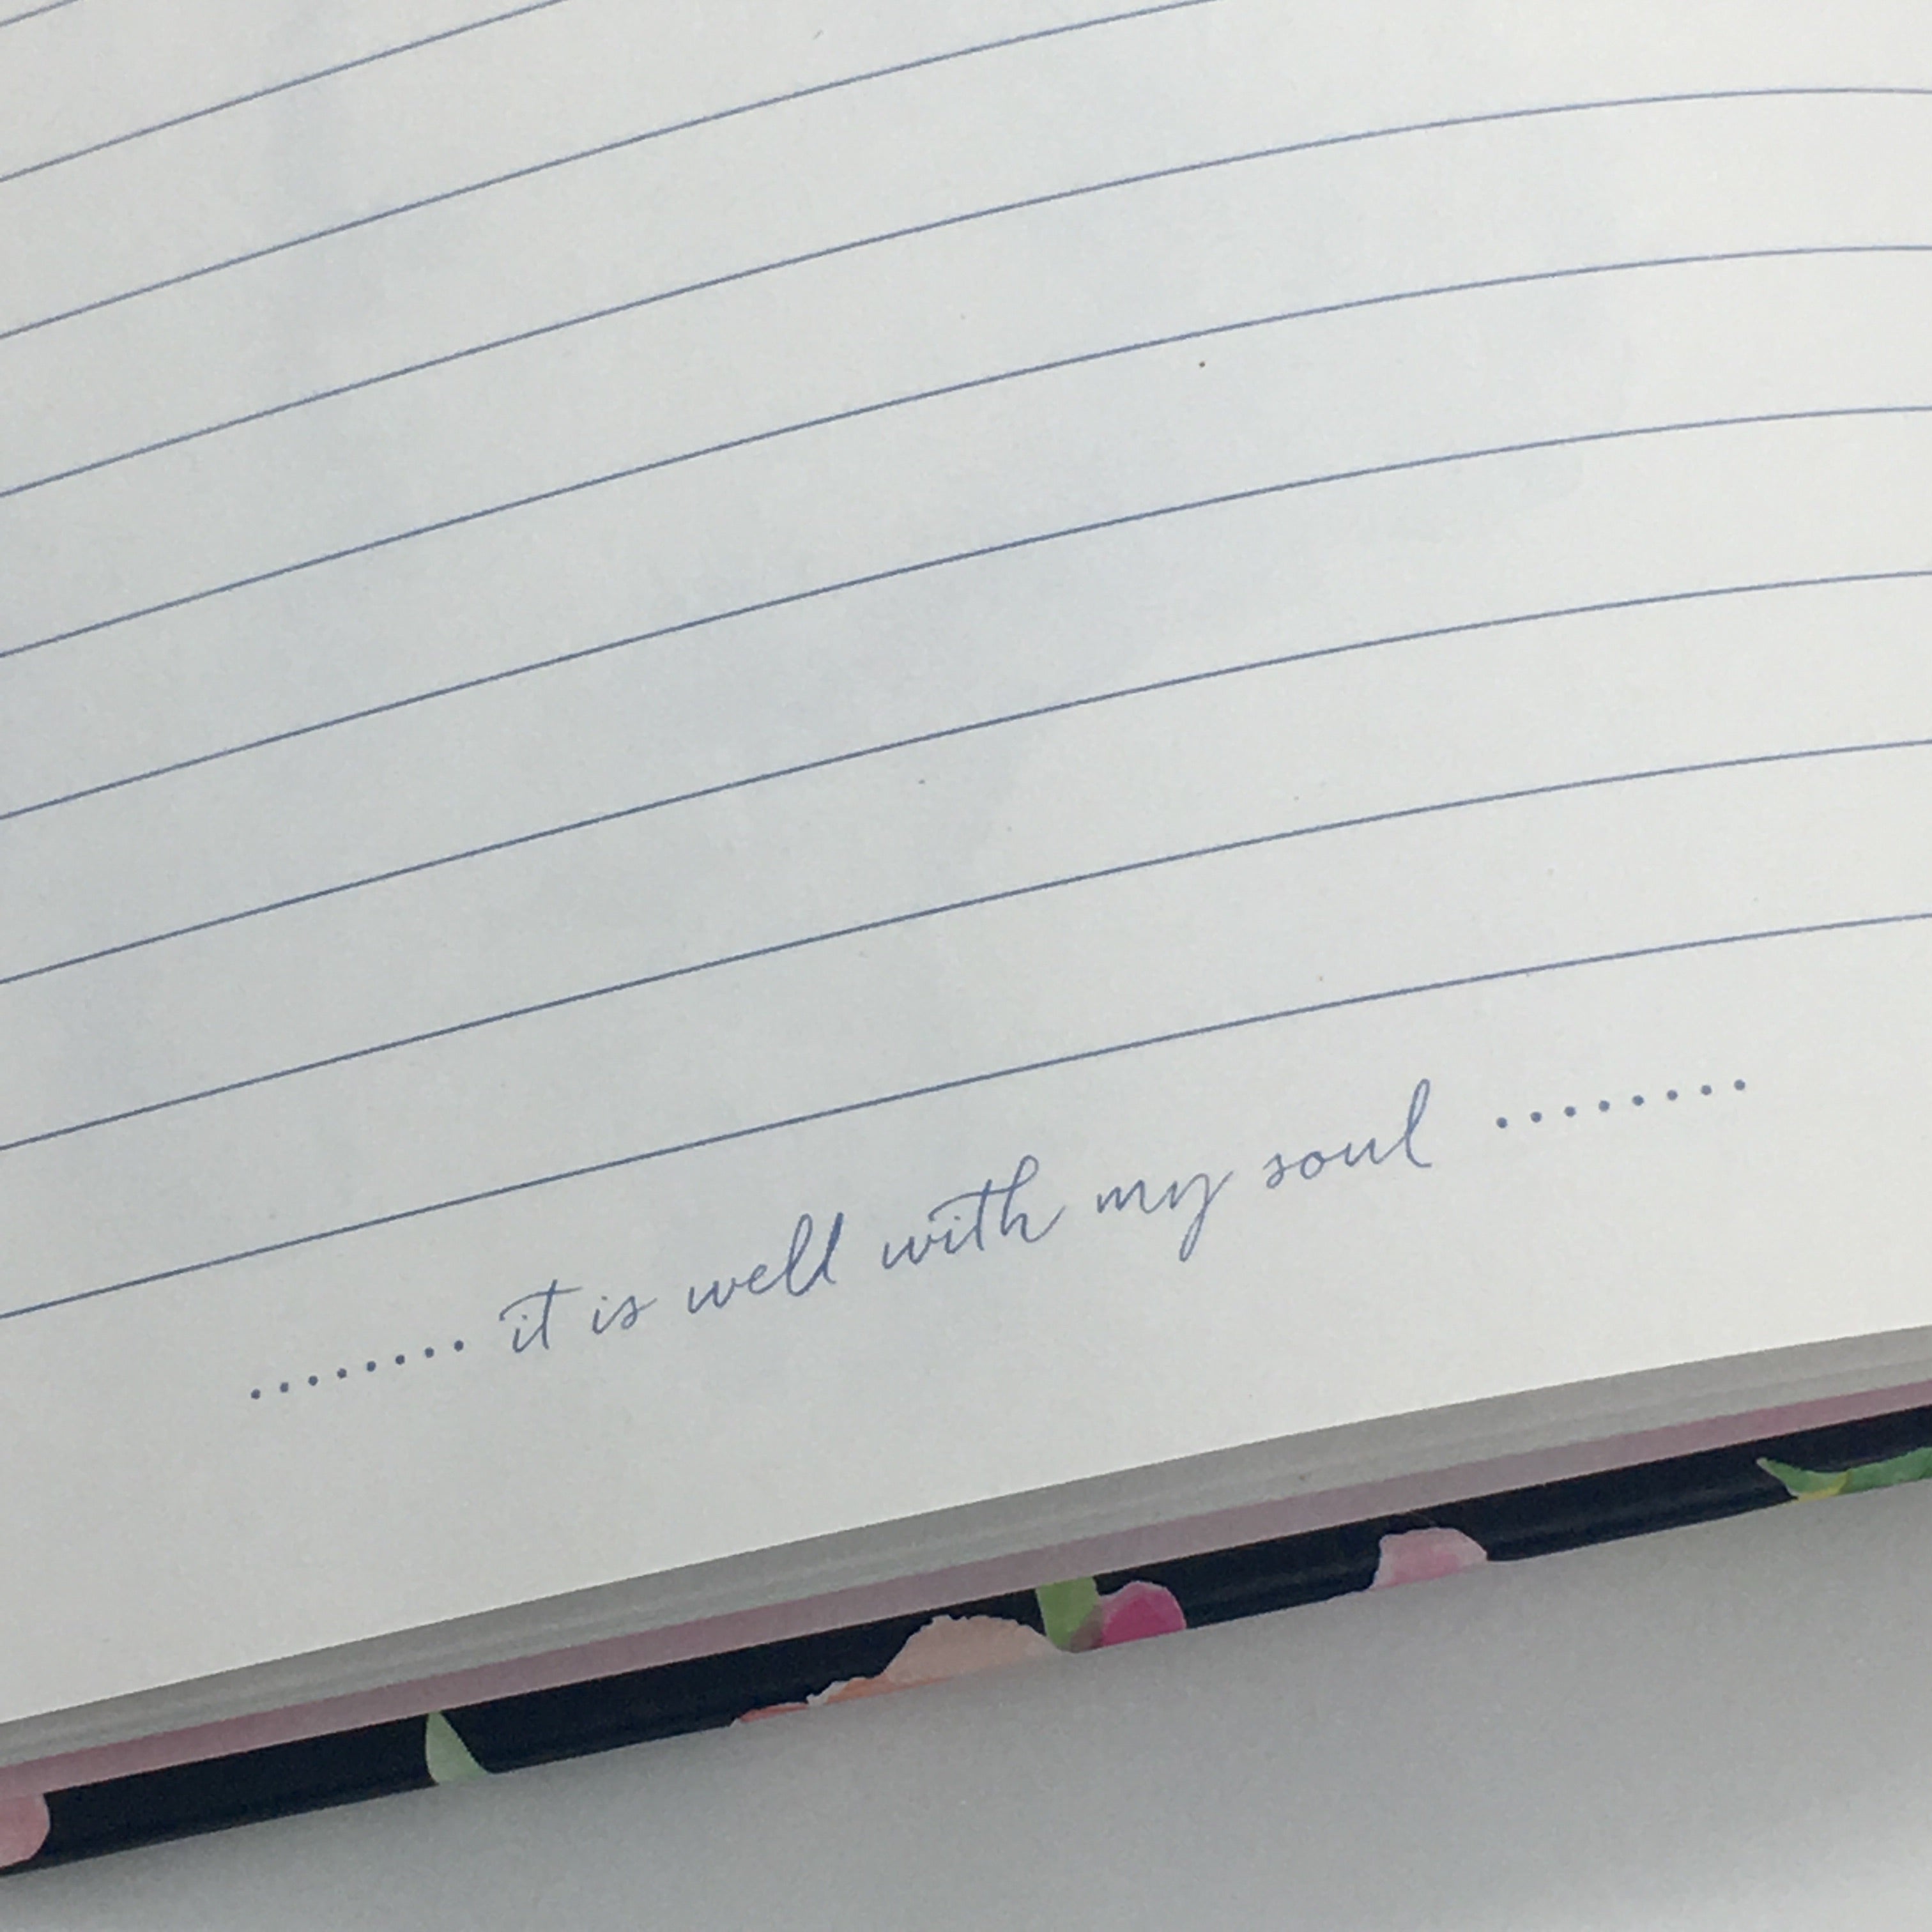 ........ it is well with my soul ........